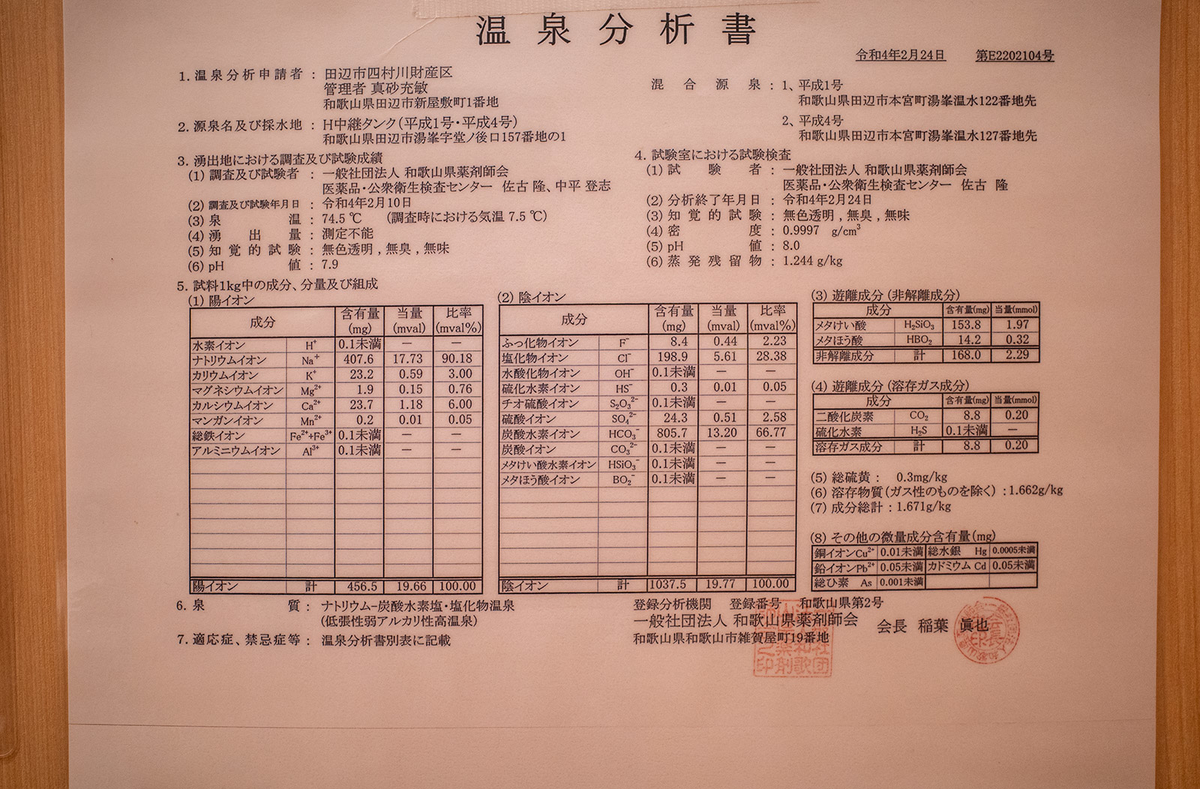 温泉分析書
令和4年2月24日 第E2202104号
1.温泉分析申請者 : 田辺市四村川財産区
管理者 真砂充敏
和歌山県田辺市新屋敷町1番地
混合源泉 : 1、平成1号
和歌山県田辺市本宮町湯峯温水122番地先
2、平成4号
和歌山県田辺市本宮町湯峯温水127番地先
2.源泉名及び採水地 : H中継タンク(平成1号・平成4号)
和歌山県田辺市湯峯字堂ノ後口157番地の1
3.湧出地における調査及び試験成績
(1)調査及び試験者 : 一般社団法人 和歌山県薬剤師会
医薬品・公衆衛生検査センター 佐古 隆、中平 登志
(2)調査及び試験年月日 : 令和4年2月10日
(3)泉温 : 74.5 ℃ (調査時における気温 7.5 ℃)
(4)湧出量 : 測定不能
(5)知覚的試験 : 無色透明 , 無臭 , 無味
(6)pH値 : 7.9
4.試験室における試験検査
(1)試験者 : 一般社団法人 和歌山県薬剤師会
医薬品・公衆衛生検査センター 佐古 隆
(2)分析終了年月日 : 令和4年2月24日
(3)知覚的試験 : 無色透明 , 無臭 , 無味
(4)密度 : 0.9997 g/cm³
(5)pH値 : 8.0
(6)蒸発残留物 : 1.244 g/kg
5.試料1kg中の成分、分量及び組成
(1)陽イオン
成分 含有量(mg) 当量(mval) 比率(mval%)
水素イオン H⁺ 0.1未満 － －
ナトリウムイオン Na⁺ 407.6 17.73 90.18
カリウムイオン K⁺ 23.2 0.59 3.00
マグネシウムイオン Mg²⁺ 1.9 0.15 0.76
カルシウムイオン Ca²⁺ 23.7 1.18 6.00
マンガンイオン Mn²⁺ 0.2 0.01 0.05
総鉄イオン Fe²⁺+Fe³⁺ 0.1未満 － －
アルミニウムイオン Al³⁺ 0.1未満 － －
陽イオン 計 456.5 19.66 100.00
(2)陰イオン
成分 含有量(mg) 当量(mval) 比率(mval%)
ふっ化物イオン F⁻ 8.4 0.44 2.23
塩化物イオン Cl⁻ 198.9 5.61 28.38
水酸化物イオン OH⁻ 0.1未満 － －
硫化水素イオン HS⁻ 0.3 0.01 0.05
チオ硫酸イオン S₂O₃²⁻ 0.1未満 － －
硫酸イオン SO₄²⁻ 24.3 0.51 2.58
炭酸水素イオン HCO₃⁻ 805.7 13.20 66.77
炭酸イオン CO₃²⁻ 0.1未満 － －
メタけい酸水素イオン HSiO₃⁻ 0.1未満 － －
メタほう酸イオン BO₂⁻ 0.1未満 － －
陰イオン 計 1037.5 19.77 100.00
(3)遊離成分(非解離成分)
成分 含有量(mg) 当量(mmol)
メタけい酸 H₂SiO₃ 153.8 1.97
メタほう酸 HBO₂ 14.2 0.32
非解離成分 計 168.0 2.29
(4)遊離成分(溶存ガス成分)
成分 含有量(mg) 当量(mmol)
二酸化炭素 CO₂ 8.8 0.20
硫化水素 H₂S 0.1未満 －
溶存ガス成分 計 8.8 0.20
(5)総硫黄 : 0.3mg/kg
(6)溶存物質(ガス性のものを除く) : 1.662g/kg
(7)成分総計 : 1.671g/kg
(8)その他の微量成分含有量(mg)
銅イオンCu²⁺ 0.01未満 総水銀 Hg 0.0005未満
鉛イオンPb²⁺ 0.05未満 カドミウム Cd 0.05未満
総ひ素 As 0.001未満
6.泉質 : ナトリウム−炭酸水素塩・塩化物温泉
(低張性弱アルカリ性高温泉)
7.適応症、禁忌症等 : 温泉分析書別表に記載
登録分析機関 登録番号 和歌山県第2号
一般社団法人 和歌山県薬剤師会 会長 稲葉 眞也
和歌山県和歌山市雑賀屋町19番地